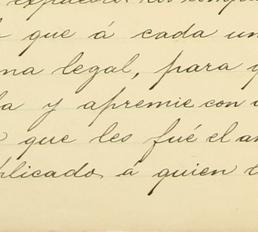 que á cada un
na legal, para
la y apremie con
que les fué el an
plicado á quien